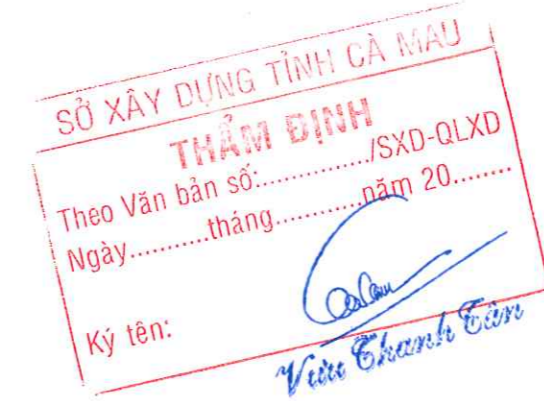 SỞ XÂY DỰNG TỈNH CÀ MAU
THẨM ĐỊNH
Theo Văn bản số:............../SXD-QLXD
Ngày..........tháng...........năm 20........
Ký tên:
Vưu Thanh Tân